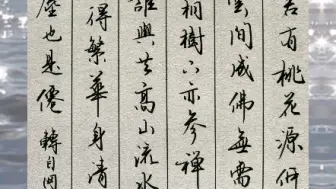 若有桃花源何
間成佛無需
桐樹下亦參禪
誰與共高山流水
得繁華身清
塵也是僊 轉自网